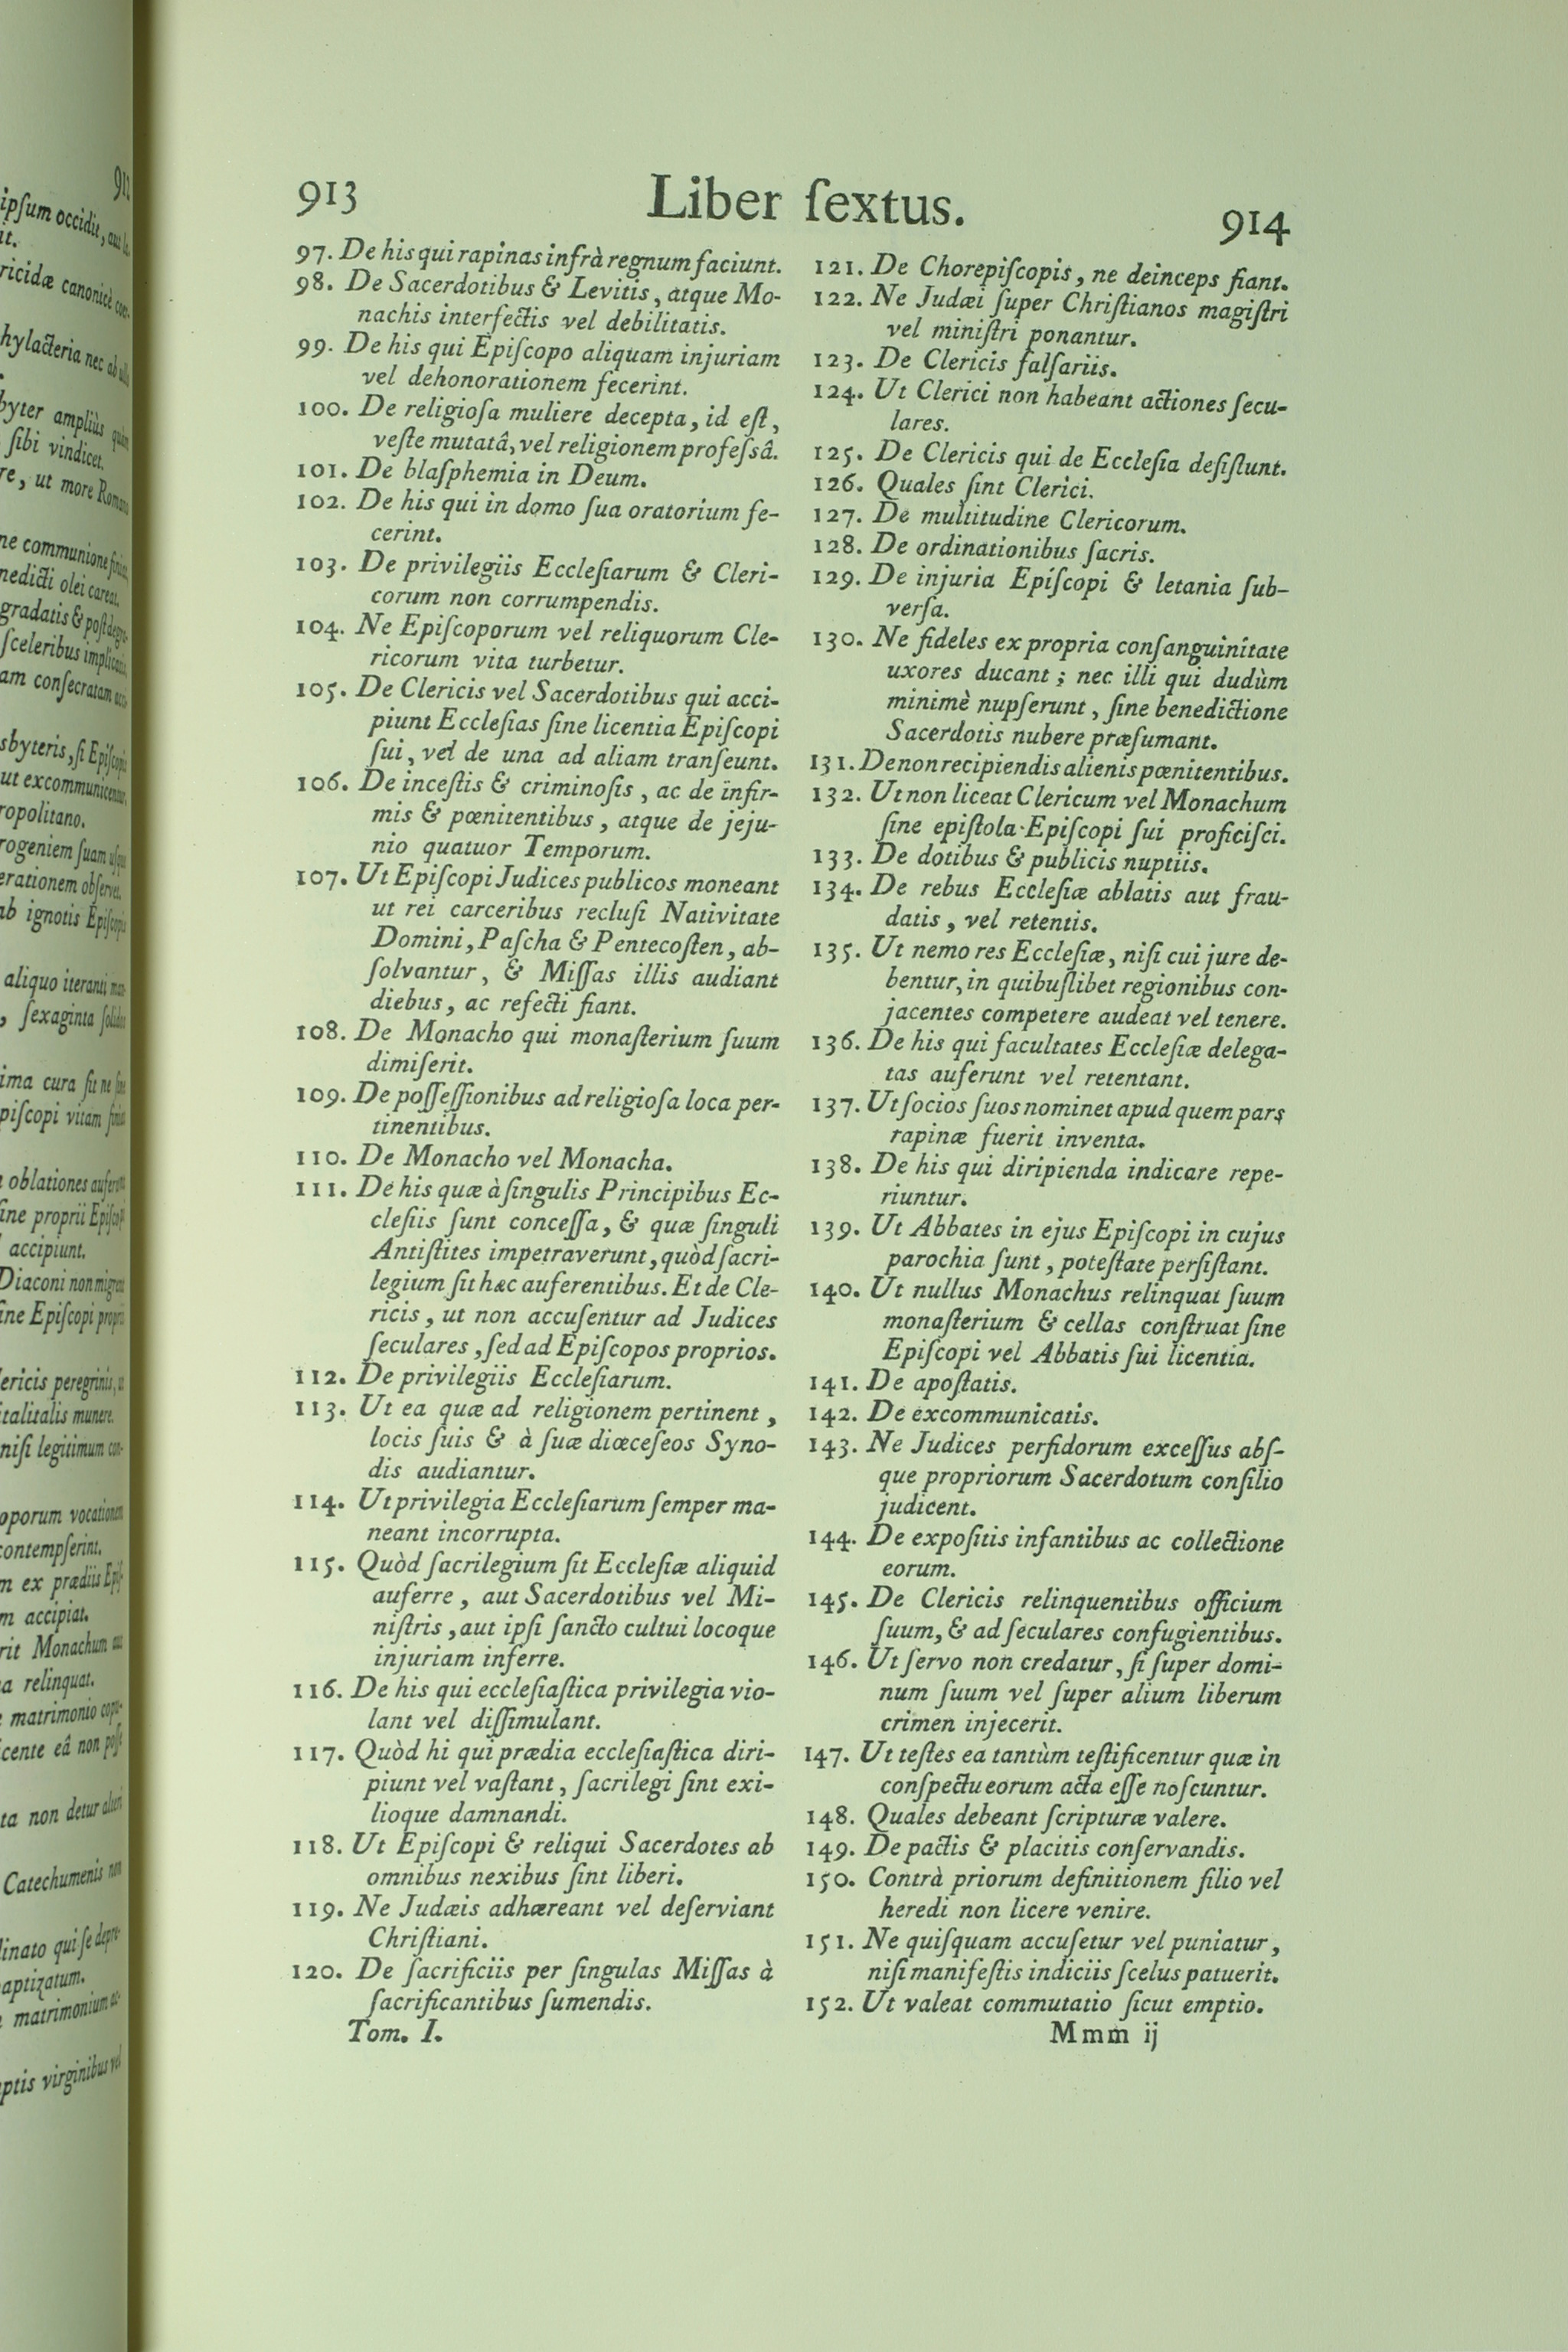 913
Liber ſextus.
914
97. De his qui rapinas infrà regnum faciunt.
98. De Sacerdotibus & Levitis, atque Mo-
nachis interfectis vel debilitatis.
99. De his qui Epiſcopo aliquam injuriam
vel dehonorationem fecerint.
100. De religioſa muliere decepta, id eſt,
veſte mutatâ, vel religionem profeſsâ.
101. De blaſphemia in Deum.
102. De his qui in domo ſua oratorium fe-
cerint.
103. De privilegiis Eccleſiarum & Cleri-
corum non corrumpendis.
104. Ne Epiſcoporum vel reliquorum Cle-
ricorum vita turbetur.
105. De Clericis vel Sacerdotibus qui acci-
piunt Eccleſias ſine licentia Epiſcopi
ſui, vel de una ad aliam tranſeunt.
106. De inceſtis & criminoſis, ac de infir-
mis & pœnitentibus, atque de jeju-
nio quatuor Temporum.
107. Ut Epiſcopi Judices publicos moneant
ut rei carceribus recluſi Nativitate
Domini, Paſcha & Pentecoſten, ab-
ſolvantur, & Miſſas illis audiant
diebus, ac refecti fiant.
108. De Monacho qui monaſterium ſuum
dimiſerit.
109. De poſſeſſionibus ad religioſa loca per-
tinentibus.
110. De Monacho vel Monacha.
111. De his quæ à ſingulis Principibus Ec-
cleſiis ſunt conceſſa, & quæ ſinguli
Antiſtites impetraverunt, quòd ſacri-
legium ſit hæc auferentibus. Et de Cle-
ricis, ut non accuſentur ad Judices
ſeculares, ſed ad Epiſcopos proprios.
112. De privilegiis Eccleſiarum.
113. Ut ea quæ ad religionem pertinent,
locis ſuis & à ſuæ diœceſeos Syno-
dis audiantur.
114. Ut privilegia Eccleſiarum ſemper ma-
neant incorrupta.
115. Quòd ſacrilegium ſit Eccleſiæ aliquid
auferre, aut Sacerdotibus vel Mi-
niſtris, aut ipſi ſancto cultui locoque
injuriam inferre.
116. De his qui eccleſiaſtica privilegia vio-
lant vel diſſimulant.
117. Quòd hi qui prædia eccleſiaſtica diri-
piunt vel vaſtant, ſacrilegi ſint exi-
lioque damnandi.
118. Ut Epiſcopi & reliqui Sacerdotes ab
omnibus nexibus ſint liberi.
119. Ne Judæis adhæreant vel deſerviant
Chriſtiani.
120. De ſacrificiis per ſingulas Miſſas à
ſacrificantibus ſumendis.
Tom. I.
121. De Chorepiſcopis, ne deinceps fiant.
122. Ne Judæi ſuper Chriſtianos magiſtri
vel miniſtri ponantur.
123. De Clericis falſariis.
124. Ut Clerici non habeant actiones ſecu-
lares.
125. De Clericis qui de Eccleſia deſiſtunt.
126. Quales ſint Clerici.
127. De multitudine Clericorum.
128. De ordinationibus ſacris.
129. De injuria Epiſcopi & letania ſub-
verſa.
130. Ne fideles ex propria conſanguinitate
uxores ducant; nec illi qui dudùm
minimè nupſerunt, ſine benedictione
Sacerdotis nubere præſumant.
131. De non recipiendis alienis pœnitentibus.
132. Ut non liceat Clericum vel Monachum
ſine epiſtola Epiſcopi ſui proficiſci.
133. De dotibus & publicis nuptiis.
134. De rebus Eccleſiæ ablatis aut frau-
datis, vel retentis.
135. Ut nemo res Eccleſiæ, niſi cui jure de-
bentur, in quibuſlibet regionibus con-
jacentes competere audeat vel tenere.
136. De his qui facultates Eccleſiæ delega-
tas auferunt vel retentant.
137. Ut ſocios ſuos nominet apud quem pars
rapinæ fuerit inventa.
138. De his qui diripienda indicare repe-
riuntur.
139. Ut Abbates in ejus Epiſcopi in cujus
parochia ſunt, poteſtate perſiſtant.
140. Ut nullus Monachus relinquat ſuum
monaſterium & cellas conſtruat ſine
Epiſcopi vel Abbatis ſui licentia.
141. De apoſtatis.
142. De excommunicatis.
143. Ne Judices perfidorum exceſſus abſ-
que propriorum Sacerdotum conſilio
judicent.
144. De expoſitis infantibus ac collectione
eorum.
145. De Clericis relinquentibus officium
ſuum, & ad ſeculares confugientibus.
146. Ut ſervo non credatur, ſi ſuper domi-
num ſuum vel ſuper alium liberum
crimen injecerit.
147. Ut teſtes ea tantùm teſtificentur quæ in
conſpectu eorum acta eſſe noſcuntur.
148. Quales debeant ſcripturæ valere.
149. De pactis & placitis conſervandis.
150. Contrà priorum definitionem filio vel
heredi non licere venire.
151. Ne quiſquam accuſetur vel puniatur,
niſi manifeſtis indiciis ſcelus patuerit.
152. Ut valeat commutatio ſicut emptio.
Mmm ij